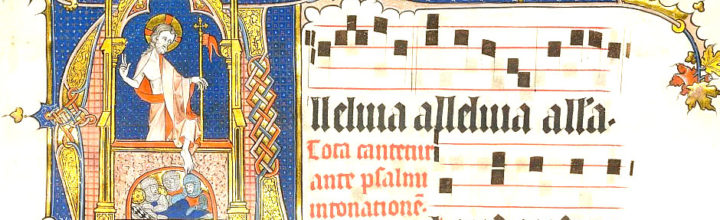 Alleluia alleluia alła.
Tota cantetur
ante psalmi
intonationē.